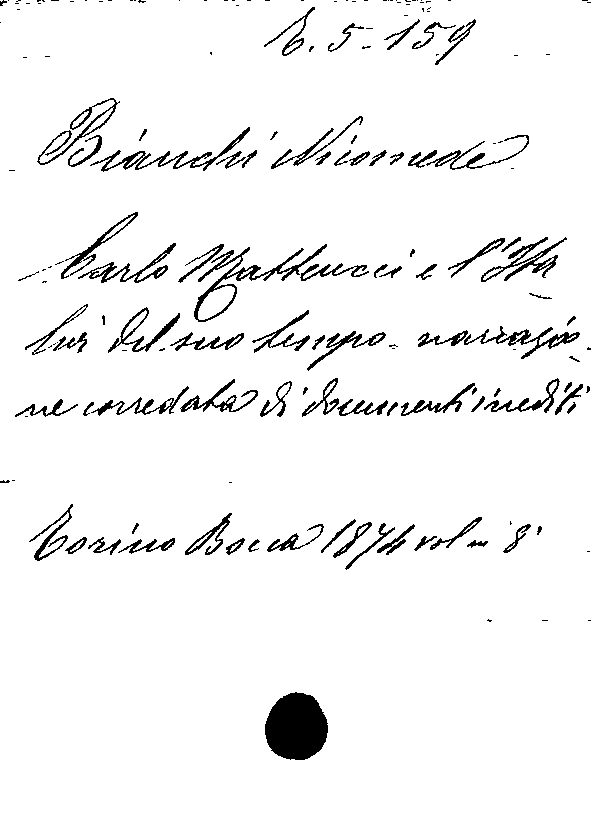 E. 5-159
Bianchi Nicomede
Carlo Matteucci e l'Ita
lia del suo tempo - narrazio
ne corredata di documenti inediti
Torino Bocca 1874 vol in 8°